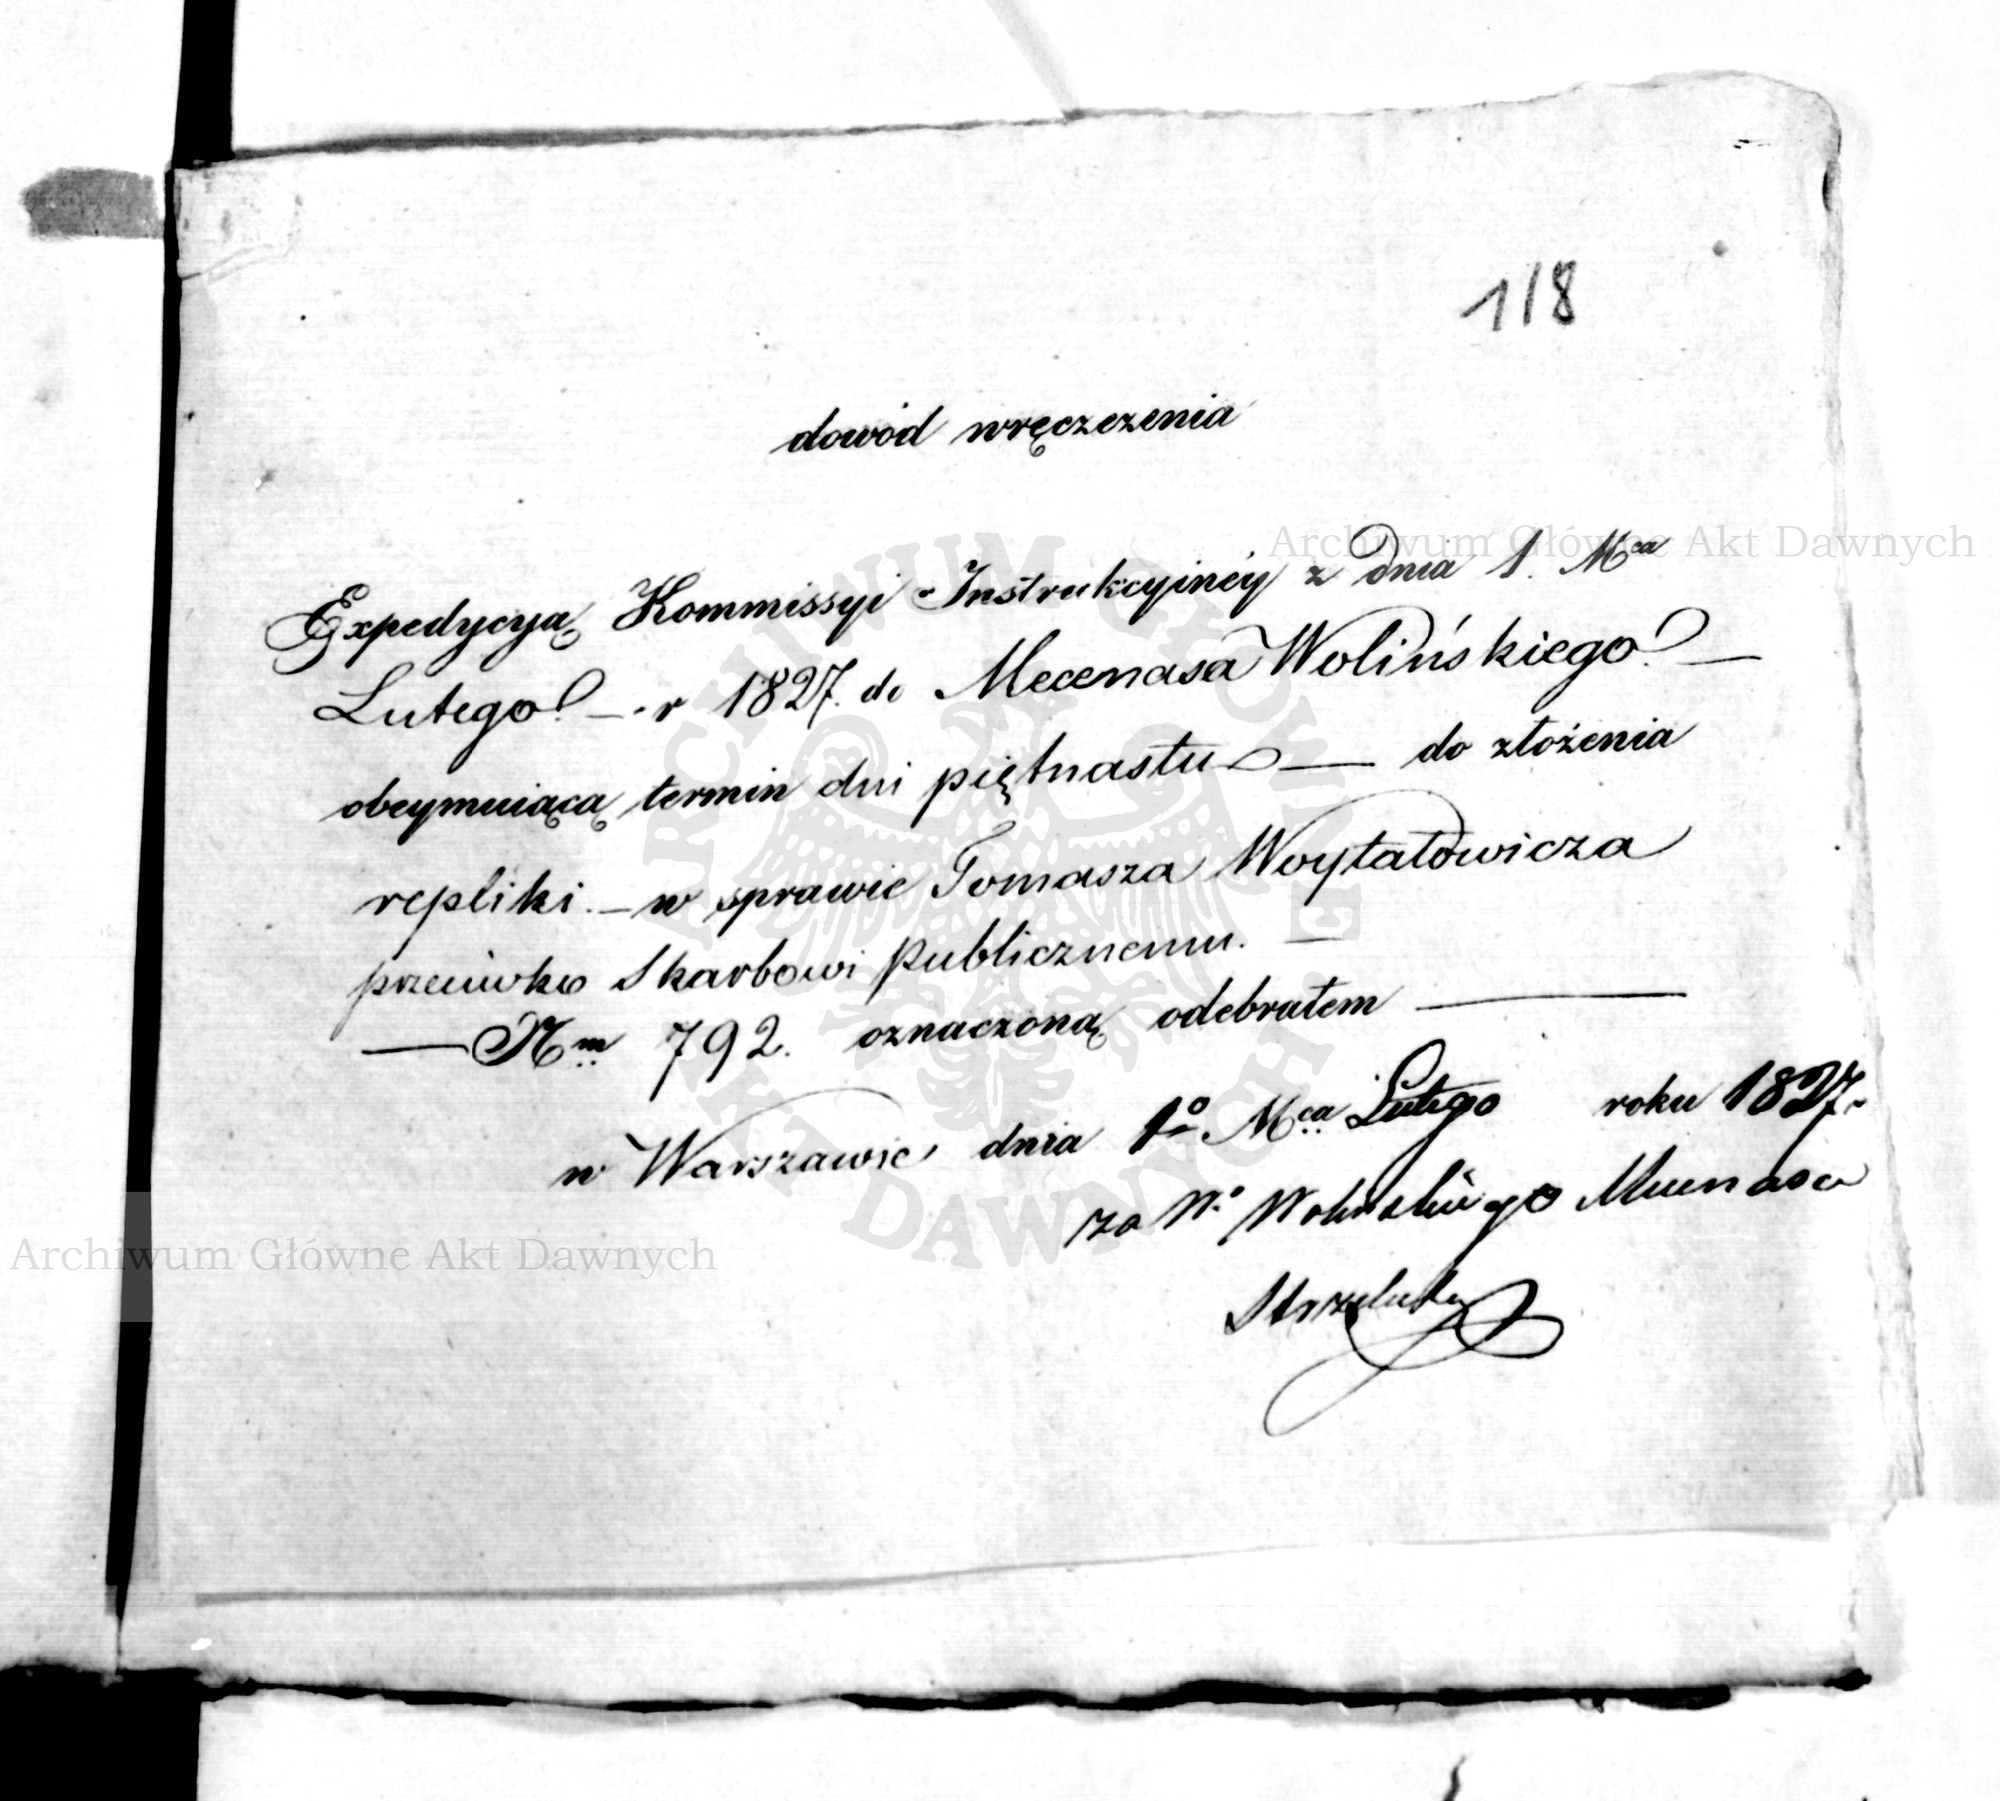 118
dowód wręczezenia
Expedycyą Kommissyi Instrukcyinéy z Dnia 1. Mca
Lutego. — r 1827. do Mecenasa Wolińskiego. —
obeymuiącą termin dni piętnastu — do złożenia
repliki. — w sprawie Tomasza Woytałowicza
przeciwko Skarbowi publicznemu. —
— Nrm 792. oznaczoną odebrałem —
w Warszawie dnia 1o Mca Lutego roku 1827.
za W. Wolińskiego Mecenasa
Archiwum Główne Akt Dawnych
Archiwum Główne Akt Dawnych
ARCHIWUM GŁÓWNE AKT DAWNYCH